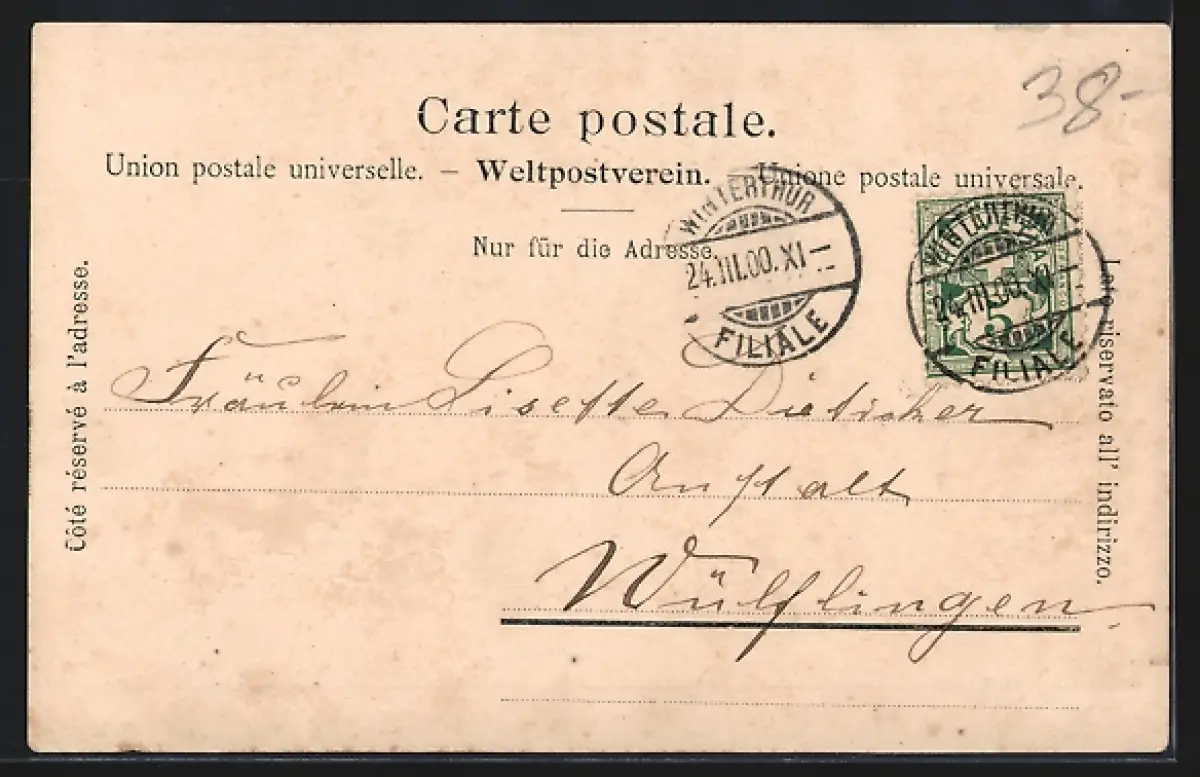 38-
Carte postale.
Union postale universelle. – Weltpostverein. – Unione postale universale.
Nur für die Adresse.
WINTERTHUR
24.III.00.XI–
FILIALE
WINTERTHUR
24.III.00.XI–
FILIALE
5
Côté réservé à l'adresse.
Lato riservato all' indirizzo.
Fräulein Lisette
Anstalt
Wülflingen